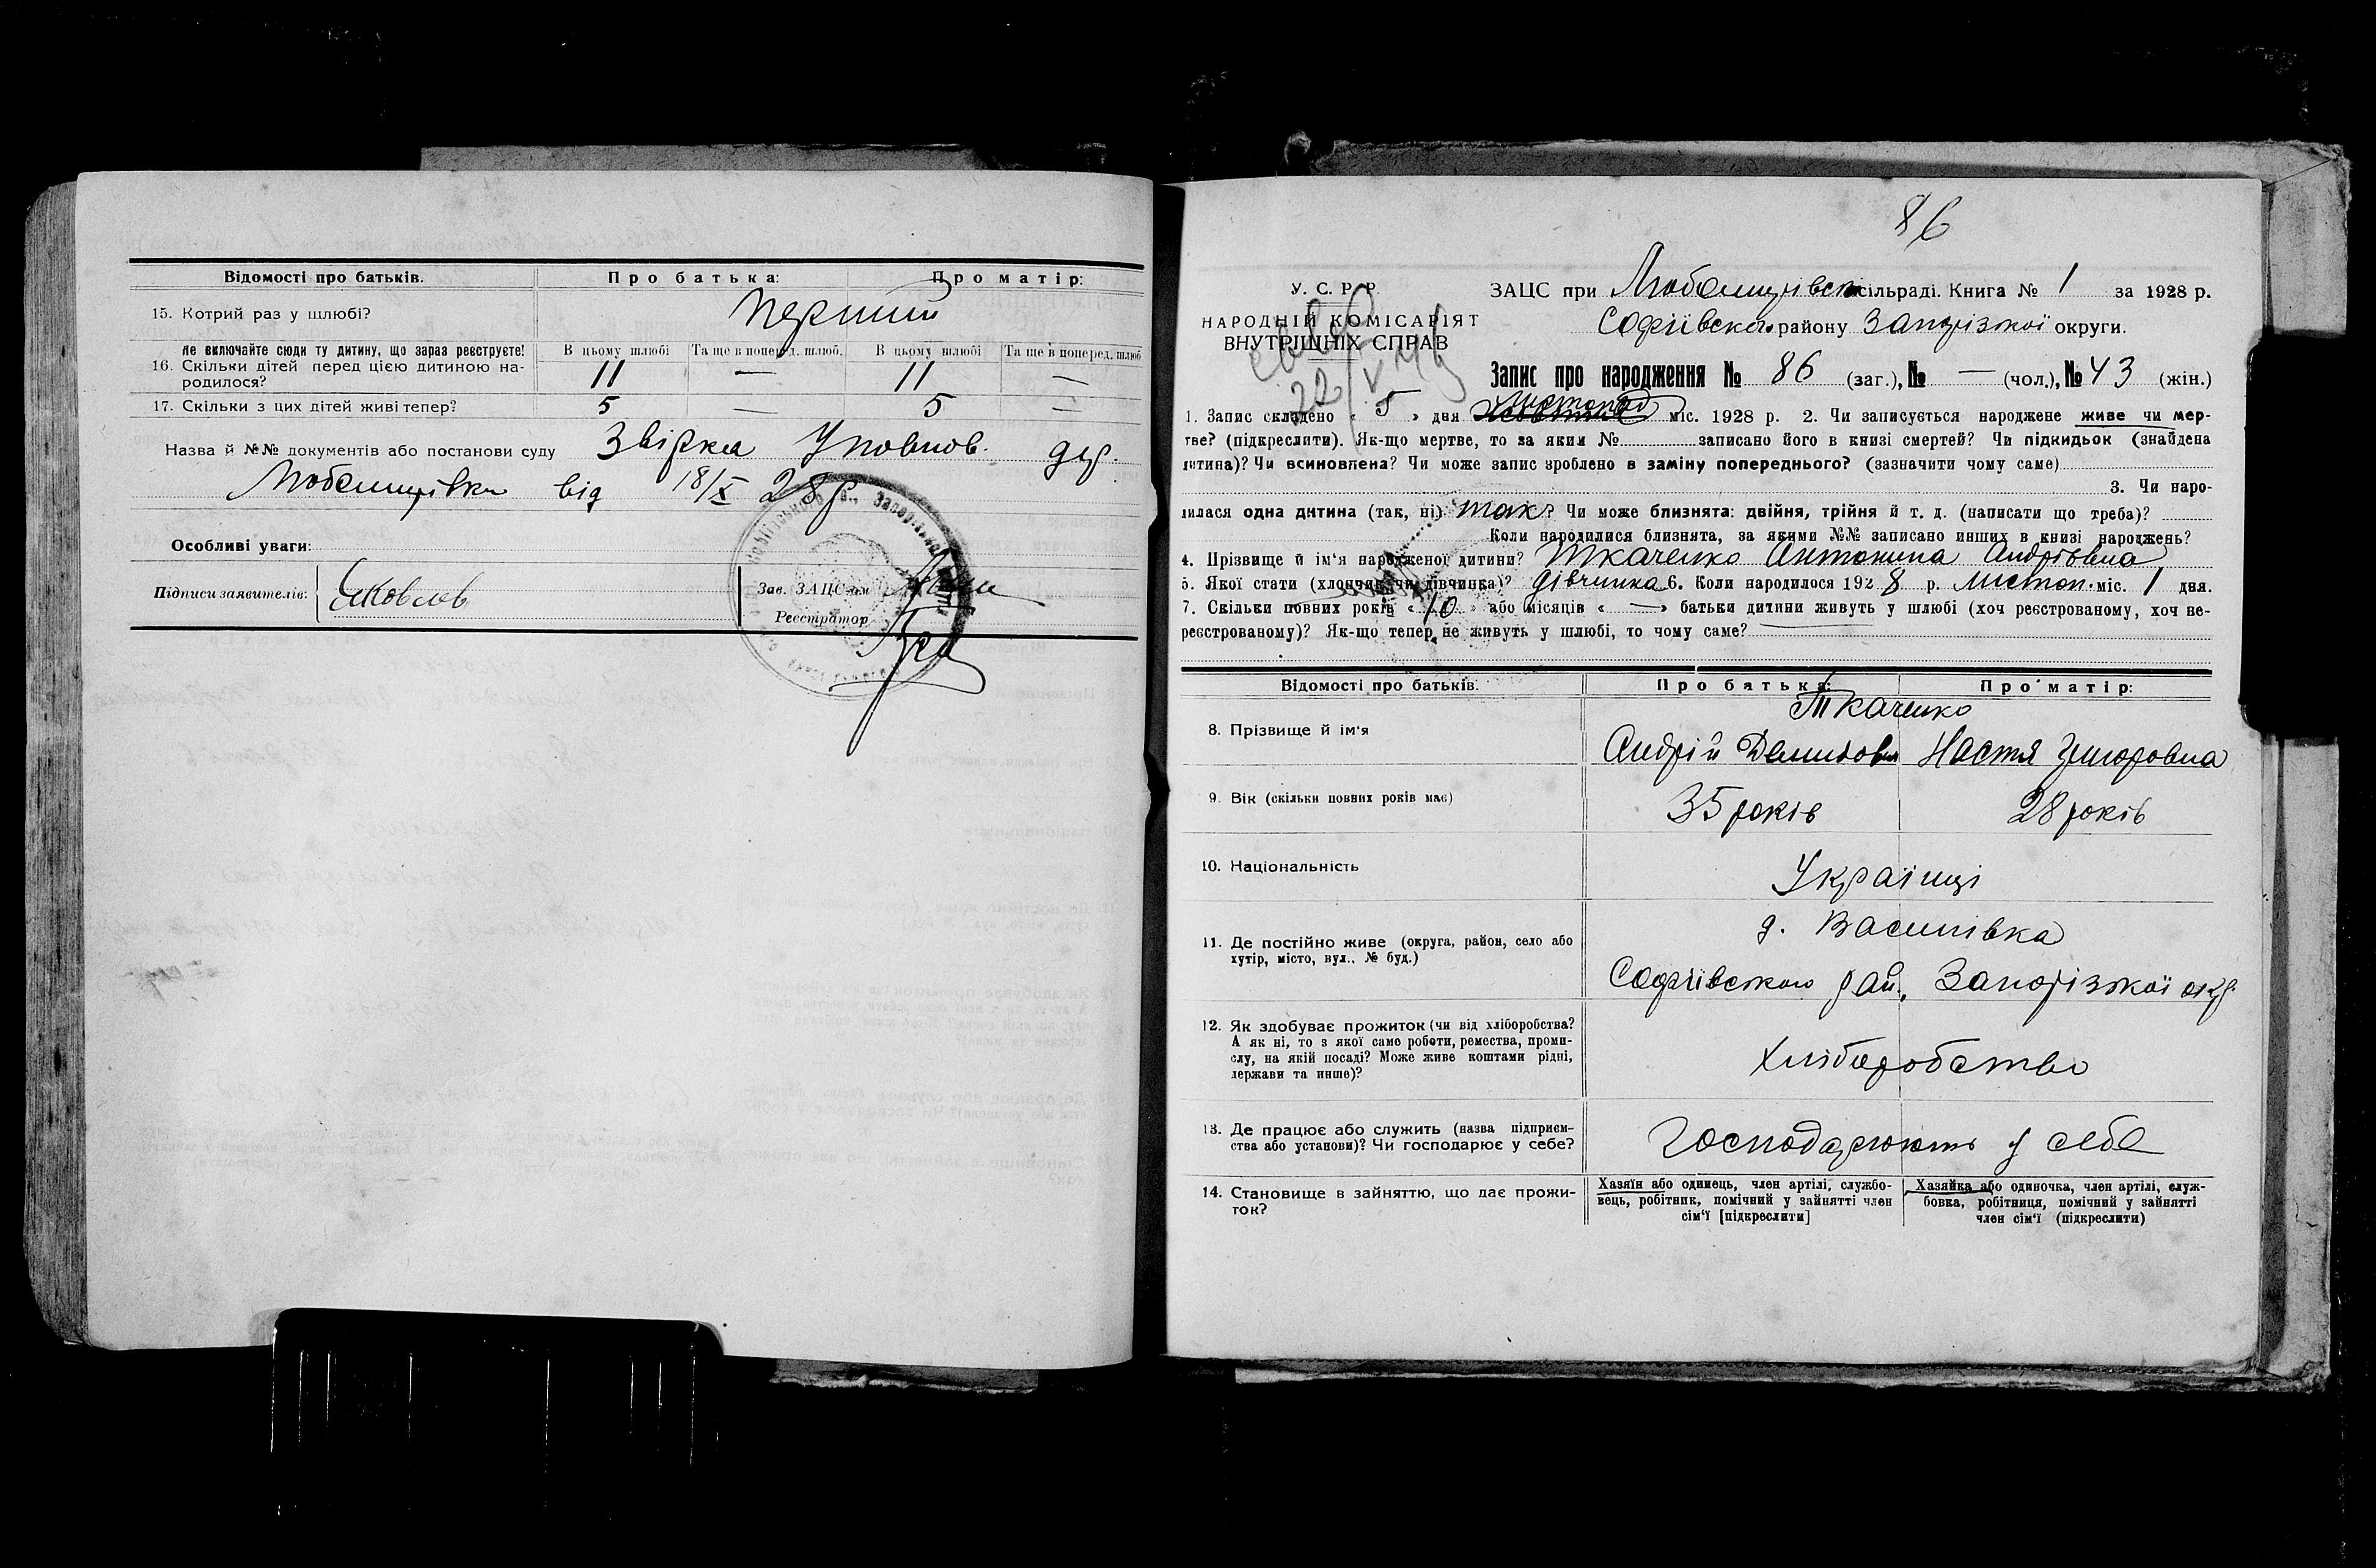 Відомості про батьків. Про батька: Про матір:
15. Котрий раз у шлюбі? перший
Не включайте сюди ту дитину, що зараз реєструєте! В цьому шлюбі Та ще в поперед. шлюб. В цьому шлюбі Та ще в поперед. шлюб
16. Скільки дітей перед цією дитиною на-
родилося? 11 — 11 —
17. Скільки з цих дітей живі тепер? 5 — 5 —
Назва й №№ документів або постанови суду Звірка Уповнов. дер.
Любомирівки від 18/X 28 р
Особливі уваги:
Підписи заявителів: Яковлєв
Зав. ЗАЦС'ом
Реєстратор
86
У. С. Р. Р.
НАРОДНІЙ КОМІСАРІЯТ
ВНУТРІШНІХ СПРАВ
22/V
ЗАЦС при Любомирівск сільраді. Книга № 1 за 1928 р.
Софіївского району Запорізької округи.
Запис про народження № 86 (заг.), № — (чол.), № 43 (жін.)
1. Запис складено « 5 » дня листопад міс. 1928 р. 2. Чи записується народжене живе чи мер-
тве? (підкреслити). Як-що мертве, то за яким № записано його в книзі смертей? Чи підкидьок (знайдена
дитина)? Чи всиновлена? Чи може запис зроблено в заміну попереднього? (зазначити чому саме)
3. Чи наро-
дилася одна дитина (так, ні) так? Чи може близнята: двійня, трійня й т. д. (написати що треба)?
Коли народилися близнята, за якими №№ записано инших в книзі народжень?
4. Прізвище й ім'я народженої дитини? Ткаченко Антонина Андріївна
5. Якої стати (хлопчик чи дівчинка)? дівчинка 6. Коли народилося 1928 р. листоп. міс. 1 дня.
7. Скільки повних років « 10 » або місяців « — » батьки дитини живуть у шлюбі (хоч реєстрованому, хоч не-
реєстрованому)? Як-що тепер не живуть у шлюбі, то чому саме?
Відомості про батьків. Про батька: Про матір:
Ткаченко
8. Прізвище й ім'я Андрій Демидович Настя Григоровна
9. Вік (скільки повних років має) 35 років 28 років
10. Національність Українці
д. Василівка
11. Де постійно живе (округа, район, село або
хутір, місто, вул., № буд.) Софіївского рай., Запорізької окр.
12. Як здобуває прожиток (чи від хліборобства?
А як ні, то з якої саме роботи, ремества, проми-
слу, на якій посаді? Може живе коштами рідні,
держави та инше)? Хліборобство
13. Де працює або служить (назва підприєм-
ства або установи)? Чи господарює у себе? Господарюють у себе
14. Становище в зайняттю, що дає прожи-
ток?
Хазяїн або одинець, член артілі, службо-
вець, робітник, помічний у зайнятті член
сім'ї [підкреслити]
Хазяйка або одиночка, член артілі, служ-
бовка, робітниця, помічний у зайнятті
член сім'ї (підкреслити)